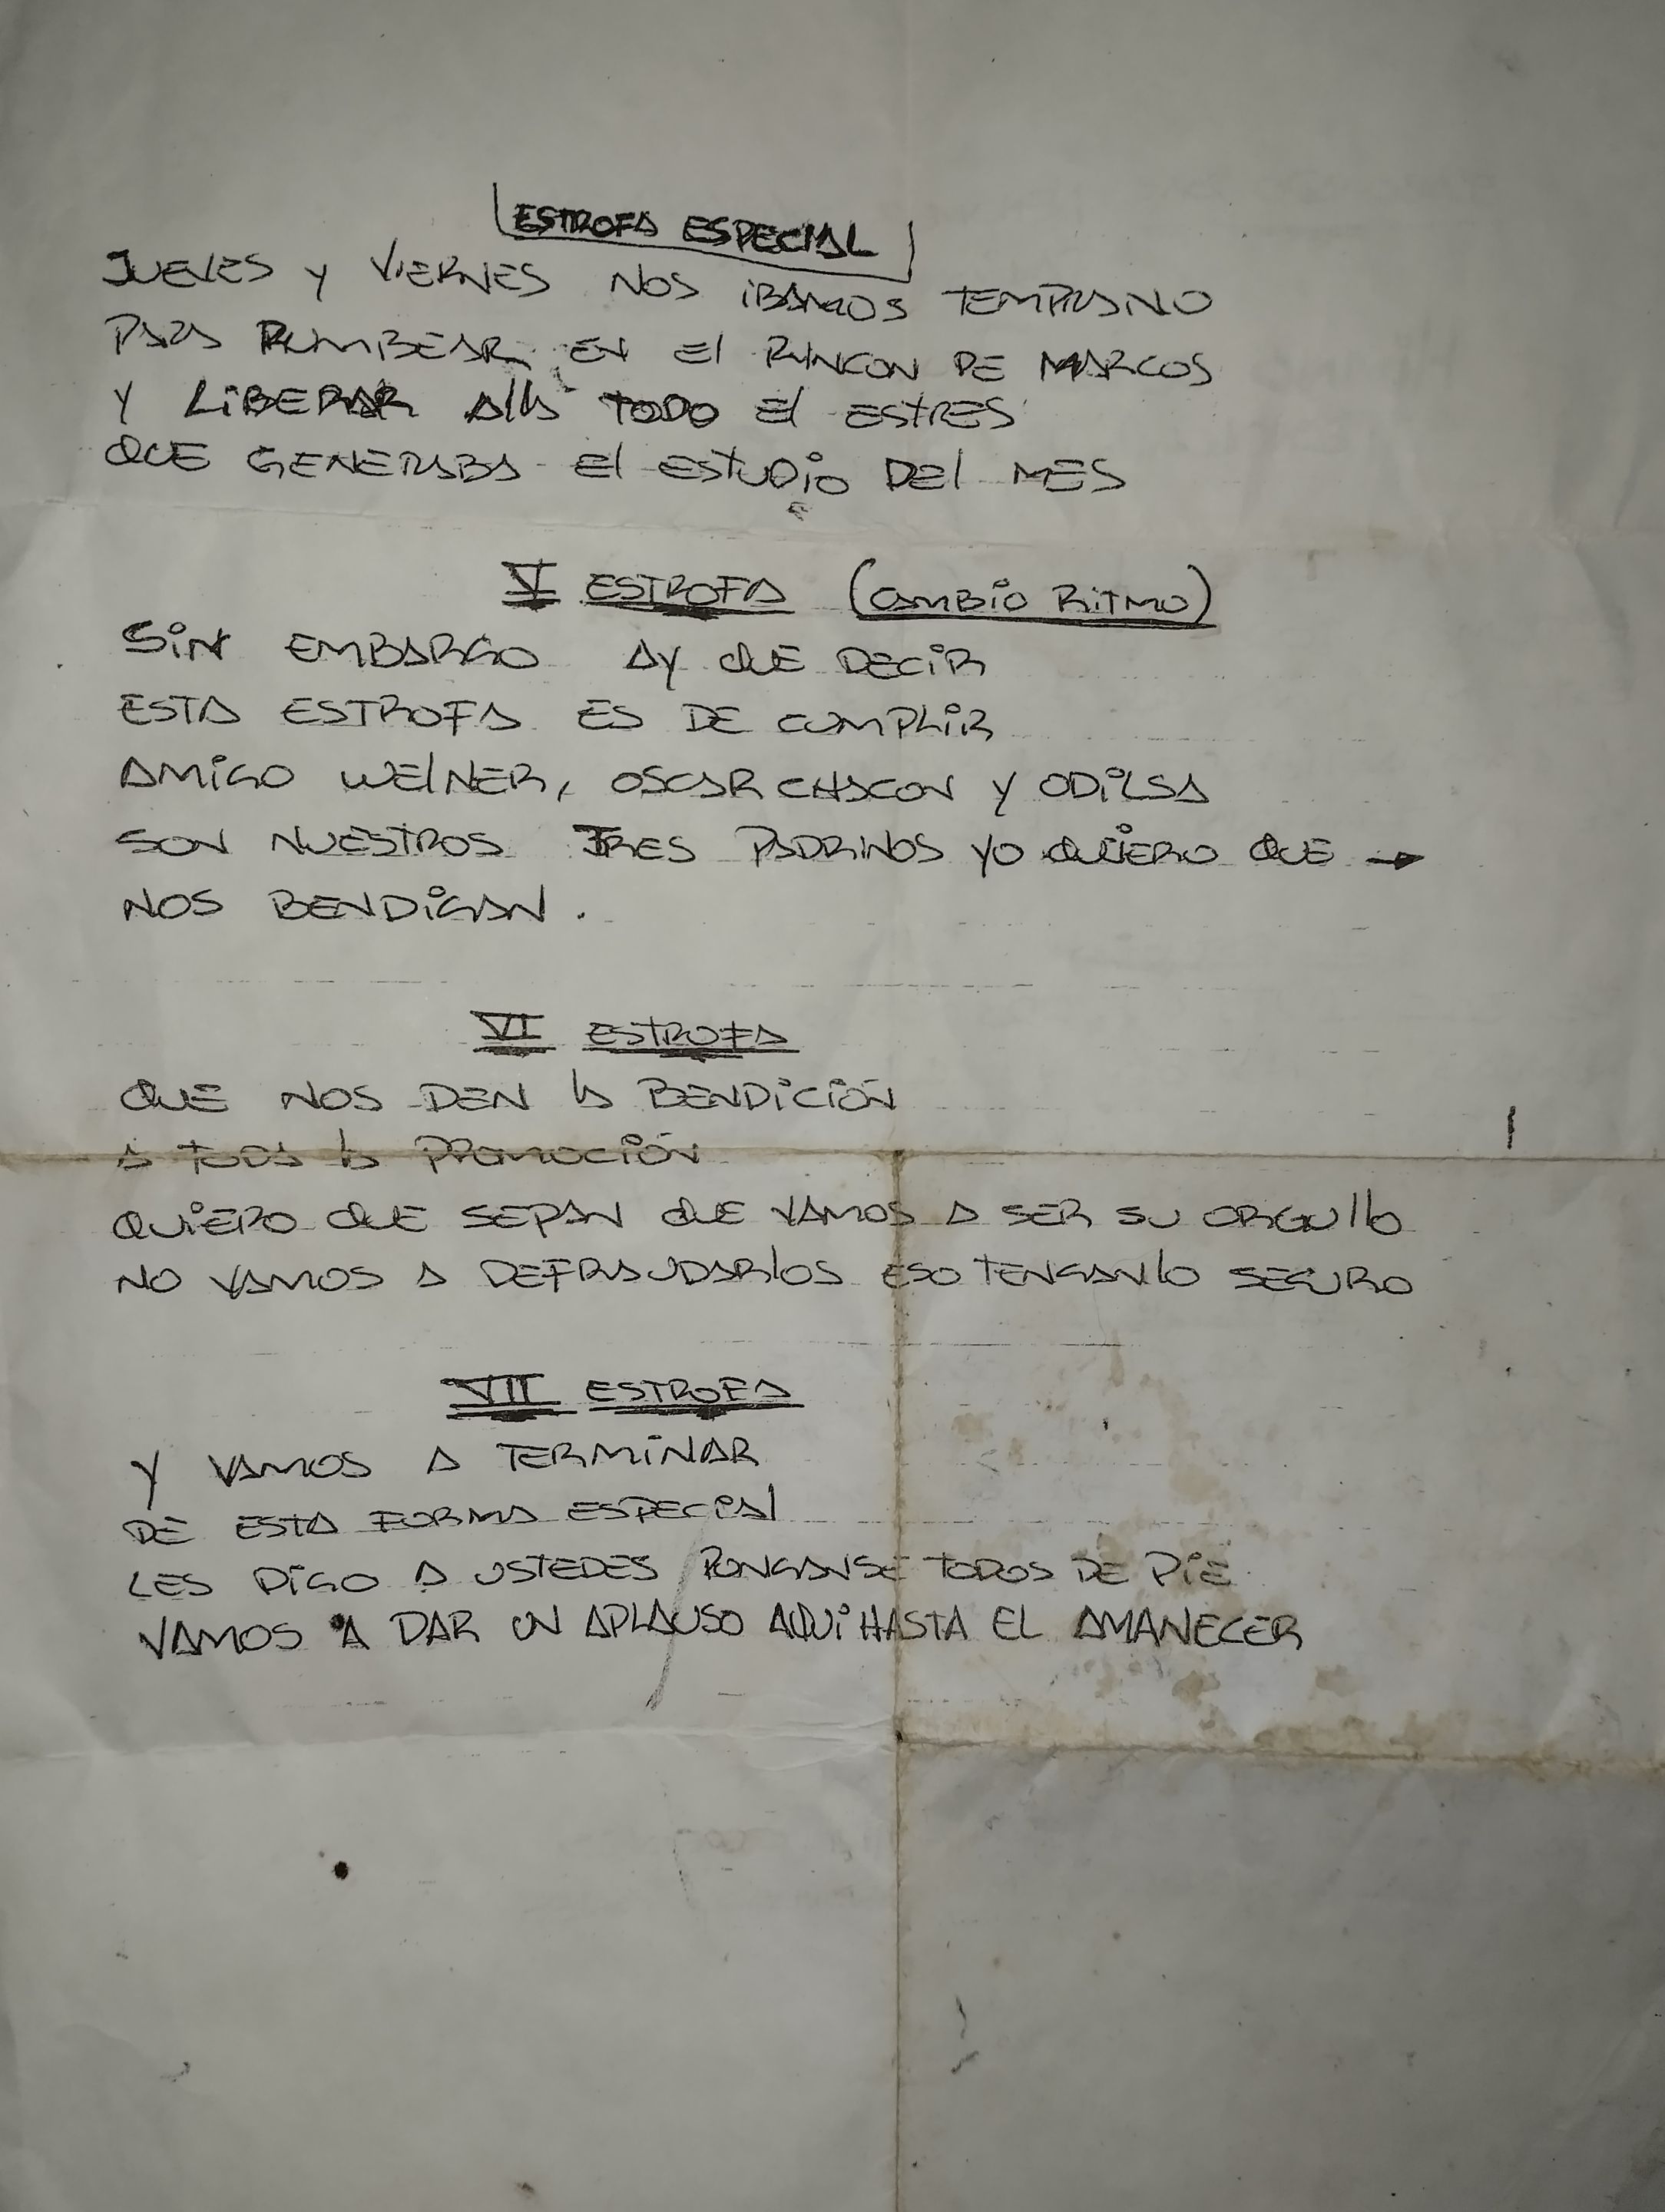 ESTROFA ESPECIAL
JUEVES Y VIERNES NOS IBAMOS TEMPRANO
PARA RUMBEAR EN El RINCON DE MARCOS
Y LIBERAR Allá TODO El ESTRES
QUE GENERABA El ESTUDIO DEl MES
V ESTROFA (CAMBIO RITMO)
SIN EMBARGO AY QUE DECIR
ESTA ESTROFA ES DE CUMPLIR
AMIGO WElNER, OSCAR CHACON Y ODILSA
SON NUESTROS TRES PADRINOS YO QUIERO QUE →
NOS BENDIGAN.
VI ESTROFA
QUE NOS DEN lA BENDICIÓN
A TODA lA PROMOCIÓN
QUIERO QUE SEPAN QUE VAMOS A SER SU ORGUllO
NO VAMOS A DEFRAUDARlOS ESO TENGANlO SEGURO
VII ESTROFA
Y VAMOS A TERMINAR
DE ESTA FORMA ESPECIAl
LES DIGO A USTEDES PONGANSE TODOS DE PIE
VAMOS A DAR UN APLAUSO AQUI HASTA EL AMANECER